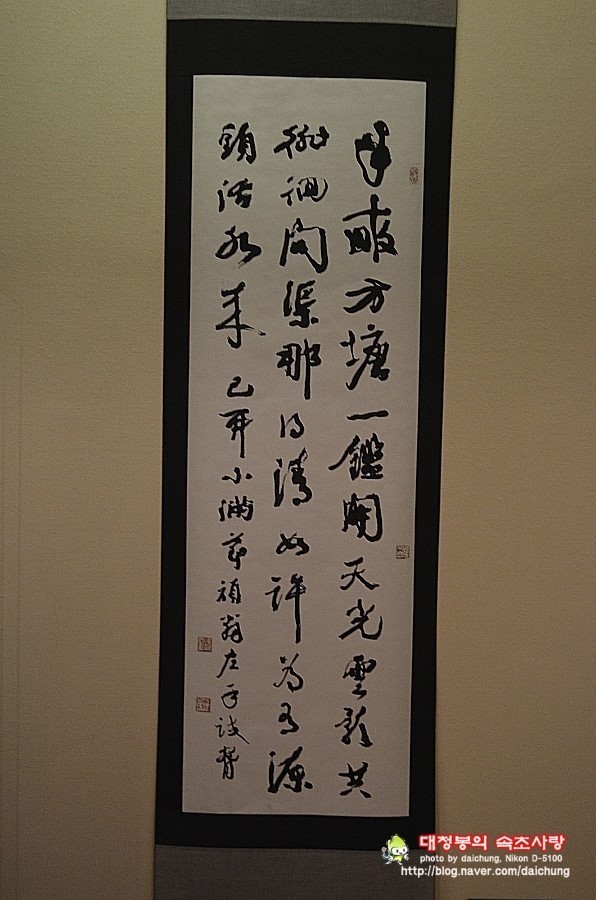 半畝方塘一鑑開天光雲影共
徘徊問渠那得清如許為有源
頭活水來 己酉小滿節 翁左手試腎
대청봉의 속초사랑
photo by daichung, Nikon D-5100
http://blog.naver.com/daichung